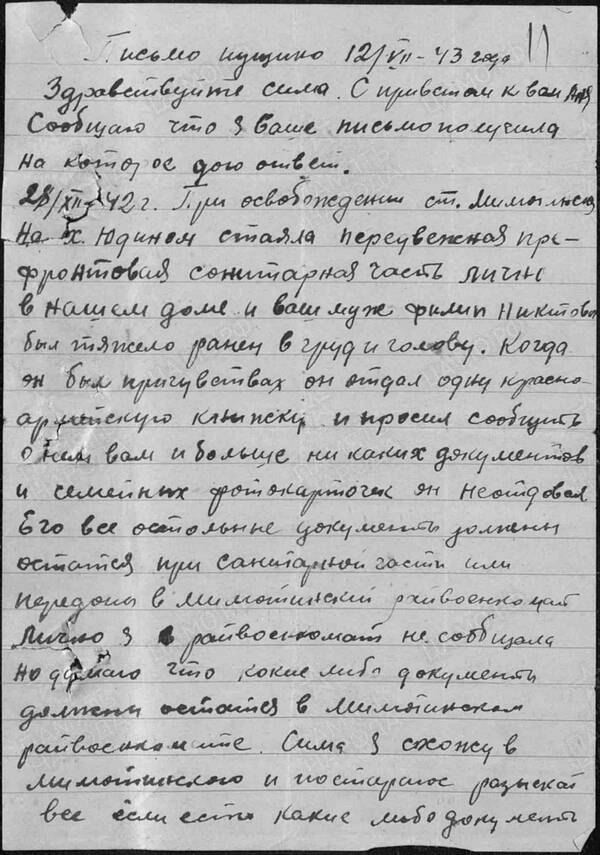 11
Письмо пущино 12/VII-43 года
Здравствуйте сима. С приветом к вам Аня
Сообщаю что я ваше письмо получила
на которое даю ответ.
28/XII-42 г. При освобождении ст.
На х. Юдином стаяла передвежная пре-
фронтовая сонитарная часть личн
в нашем доме и ваш муж филип Никитови
был тяжело ранен в груд и голову. Когда
он был причувствах он отдал одну красно-
армейскую кнышку и просил сообщить
о нем вам и больше ни каких документов
и семейных фотокарточек он неотдовал
Его все остольные документы должны
остатся при санитарной части или
переданы в райвоенкомат
Лично я в райвоенкомат не сообщала
но думаю что какие либо документы
должны остатся в
райвоенкомате. Сима я схожу в
и постараюс разыскат
все если есть какие либо документы